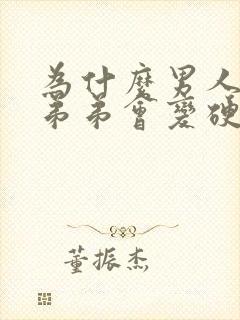 為什麼男人
弟弟會變硬
董振杰